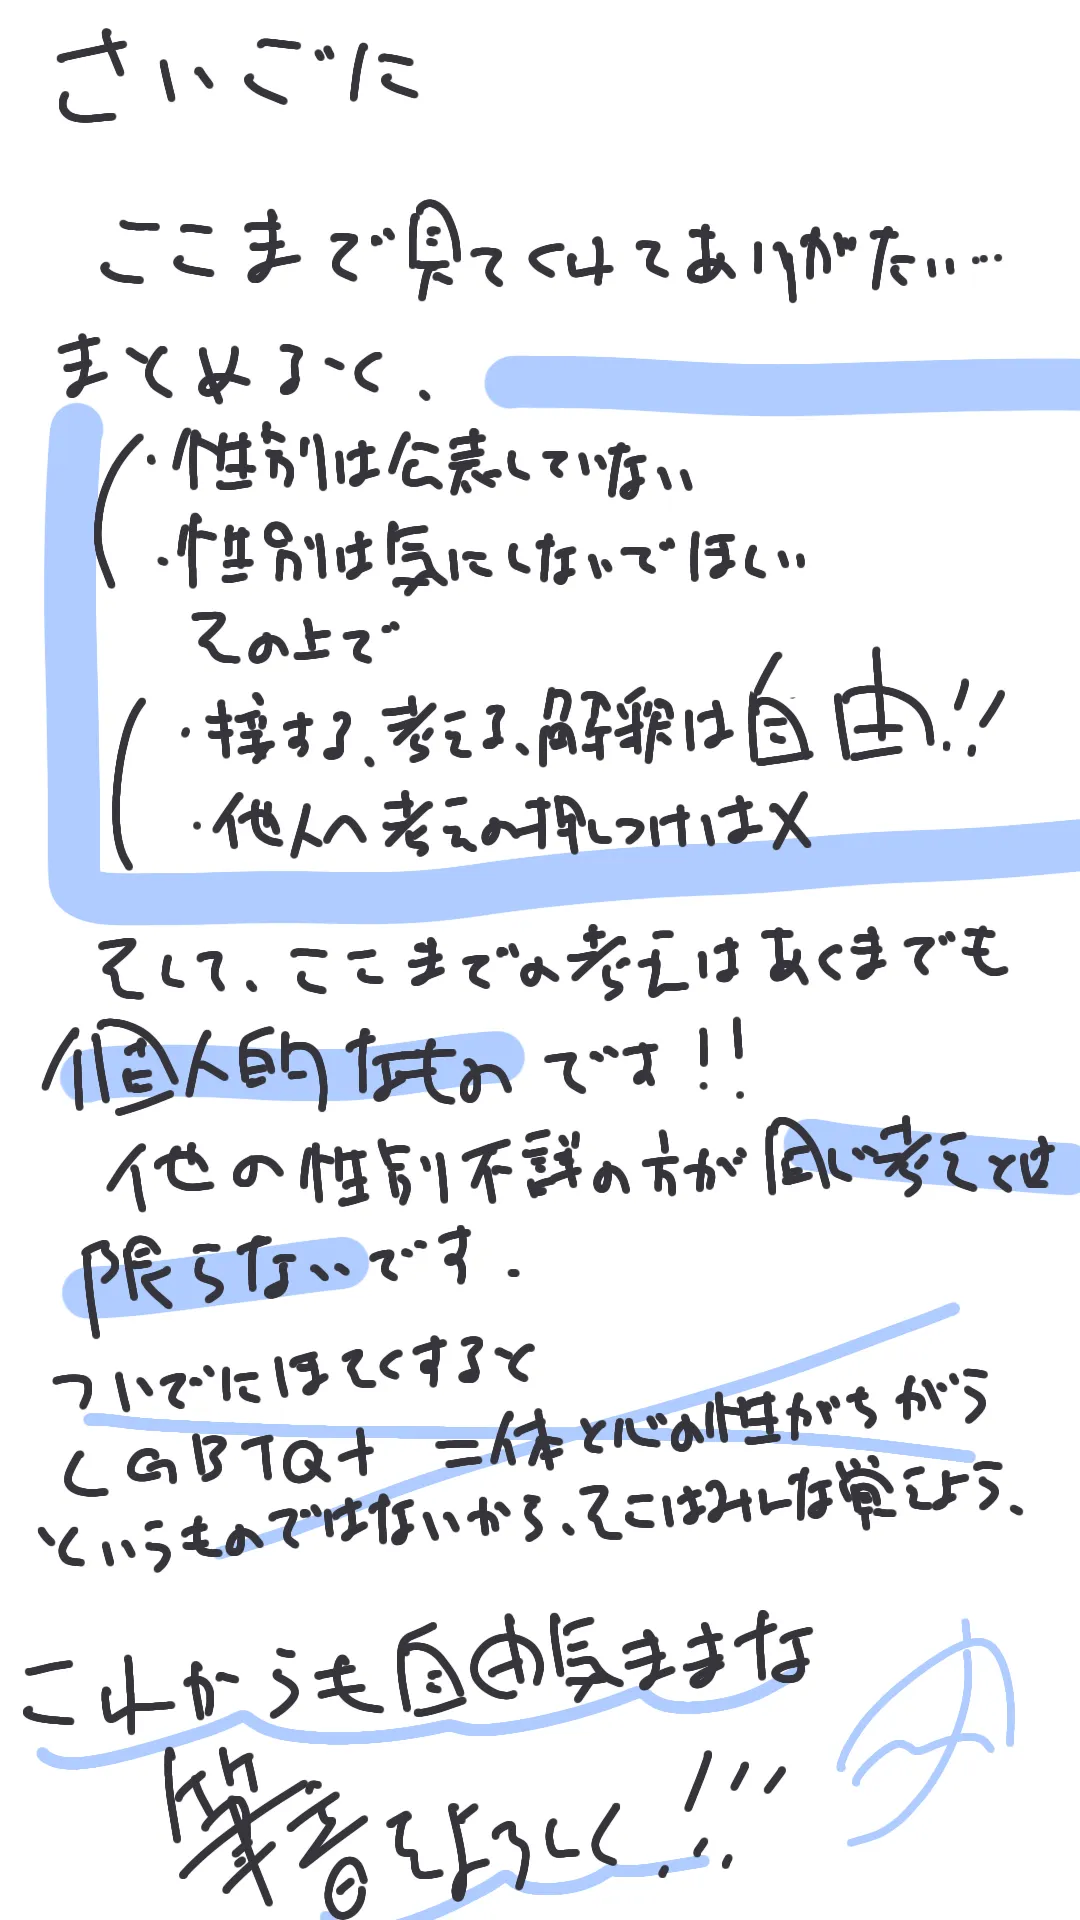 さいごに
ここまで見てくれてありがたい…
まとめると、
・性別は公表していない
・性別は気にしないでほしい
その上で
・接する、考える、解釈は自由!!
・他人へ考えの押しつけは✕
そして、ここまでの考えはあくまでも
個人的なものです!!
他の性別不詳の方が同じ考えとは
限らないです.
ついでにほそくすると
LGBTQ+=体と心の性がちがう
というものではないから、そこはみんな覚えよう、
これからも自由気ままな
筆者をよろしく!!!